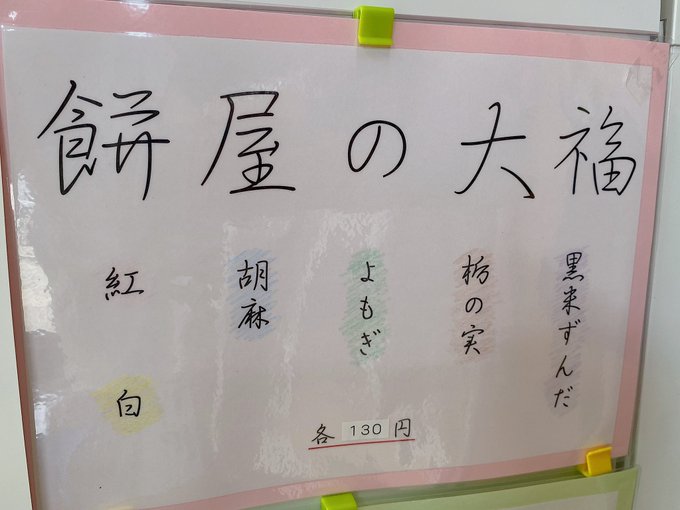 餅屋の大福
黒米ずんだ
栃の実
よもぎ
胡麻
紅
白
各130円